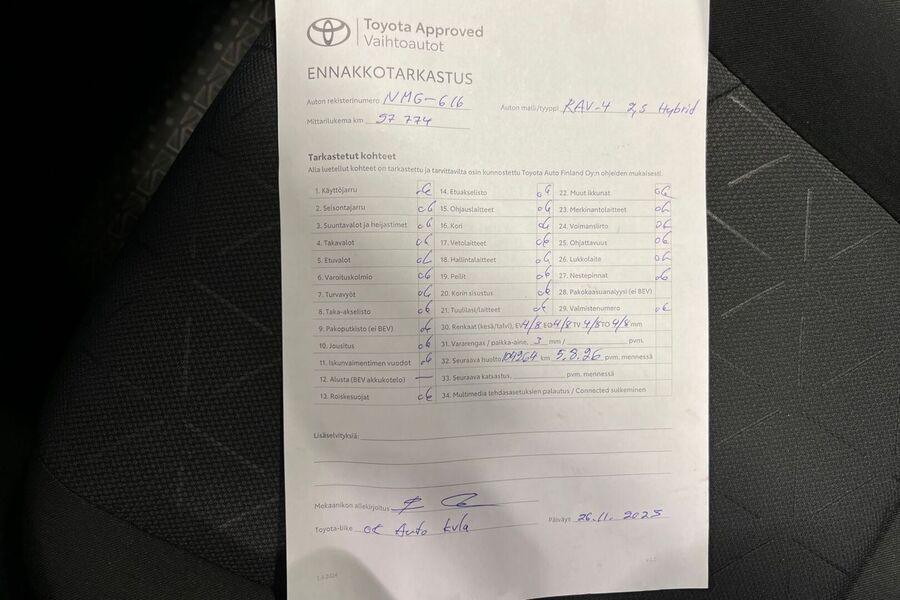 Toyota Approved
Vaihtoautot
ENNAKKOTARKASTUS
Auton rekisterinumero NMG-616 Auton malli/tyyppi RAV-4 2,5 Hybrid
Mittarilukema km 97 774
Tarkastetut kohteet
Alla luetellut kohteet on tarkastettu ja tarvittavilta osin kunnostettu Toyota Auto Finland Oy:n ohjeiden mukaisesti.
1. Käyttöjarru ok 14. Etuakselisto ok 22. Muut ikkunat ok
2. Seisontajarru ok 15. Ohjauslaitteet ok 23. Merkinantolaitteet ok
3. Suuntavalot ja heijastimet ok 16. Kori ok 24. Voimansiirto ok
4. Takavalot ok 17. Vetolaitteet ok 25. Ohjattavuus ok
5. Etuvalot ok 18. Hallintalaitteet ok 26. Lukkolaite ok
6. Varoituskolmio ok 19. Peilit ok 27. Nestepinnat ok
7. Turvavyöt ok 20. Korin sisustus ok 28. Pakokaasuanalyysi (ei BEV)
8. Taka-akselisto ok 21. Tuulilasi/laitteet ok 29. Valmistenumero ok
9. Pakoputkisto (ei BEV) ok 30. Renkaat (kesä/talvi), EV 4/8 EO 4/8 TV 4/8 TO 4/8 mm
10. Jousitus ok 31. Vararengas / paikka-aine, 3 mm / pvm.
11. Iskunvaimentimen vuodot ok 32. Seuraava huolto 104264 km 5.8.26 pvm. mennessä
12. Alusta (BEV akkukotelo) — 33. Seuraava katsastus, pvm. mennessä
13. Roiskesuojat ok 34. Multimedia tehdasasetuksien palautus / Connected sulkeminen
Lisäselvityksiä:
Mekaanikon allekirjoitus
Toyota-liike OK Auto Kvla Päiväys 26.11. 2025
1.6.2024